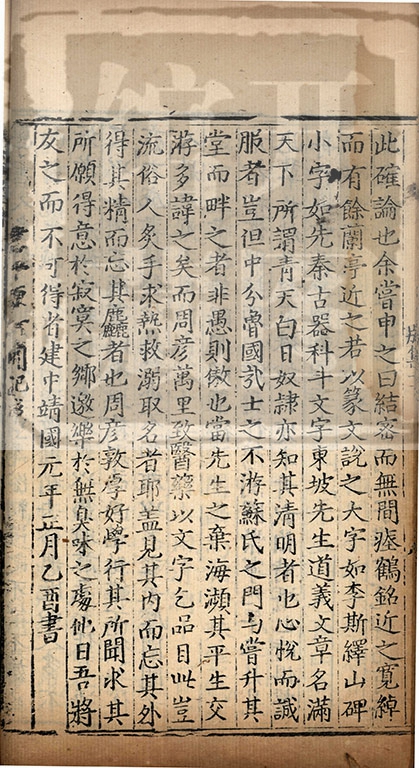 此確論也余嘗申之曰結密而無間瘞鶴銘近之寬綽
而有餘蘭亭近之若以篆文說之大字如李斯繹山碑
小字如先秦古器科斗文字東坡先生道義文章名滿
天下所謂青天白日奴隸亦知其清明者也心悅而誠
服者豈但中分魯國哉士之不游蘇氏之門与嘗升其
堂而畔之者非愚則傲也當先生之棄海瀕其平生交
游多諱之矣而周彥萬里致醫藥以文字乞品目此豈
流俗人炙手求熱救溺取名者耶盖見其內而忘其外
得其精而忘其麤者也周彥敦孝好學行其所聞求其
所願得意於寂寞之鄉邀樂於無臭味之處他日吾將
友之而不可得者建中靖國元年正月乙酉書